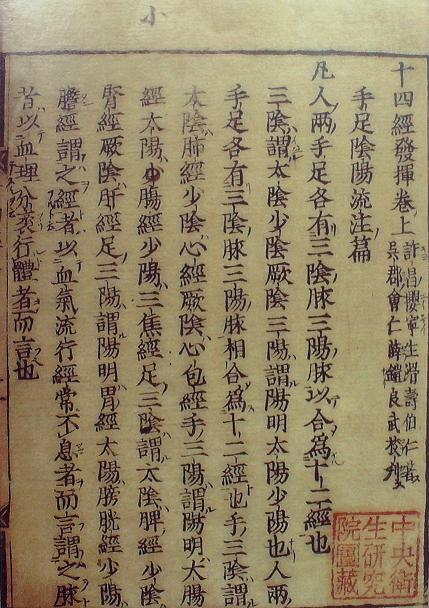 小
十四經發揮卷上
許昌攖寧生滑壽伯仁著
吳郡會仁薛鎧良武校刊
手足陰陽流注篇
凡人兩手足各有三陰脉三陽脉以合爲十二經也
三陰謂太陰少陰厥陰三陽謂陽明太陽少陽也人兩
手足各有三陰脉三陽脉相合爲十二經也手三陰謂
太陰肺經少陰心經厥陰心包經手三陽謂陽明大腸
經太陽小腸經少陽三焦經足三陰謂太陰脾經少陰
腎經厥陰肝經足三陽謂陽明胃經太陽膀胱經少陽
膽經謂之經者以血氣流行經常不息者而言謂之脉
者以血理分衺行體者而言也
中央衛
生研究
院圖藏